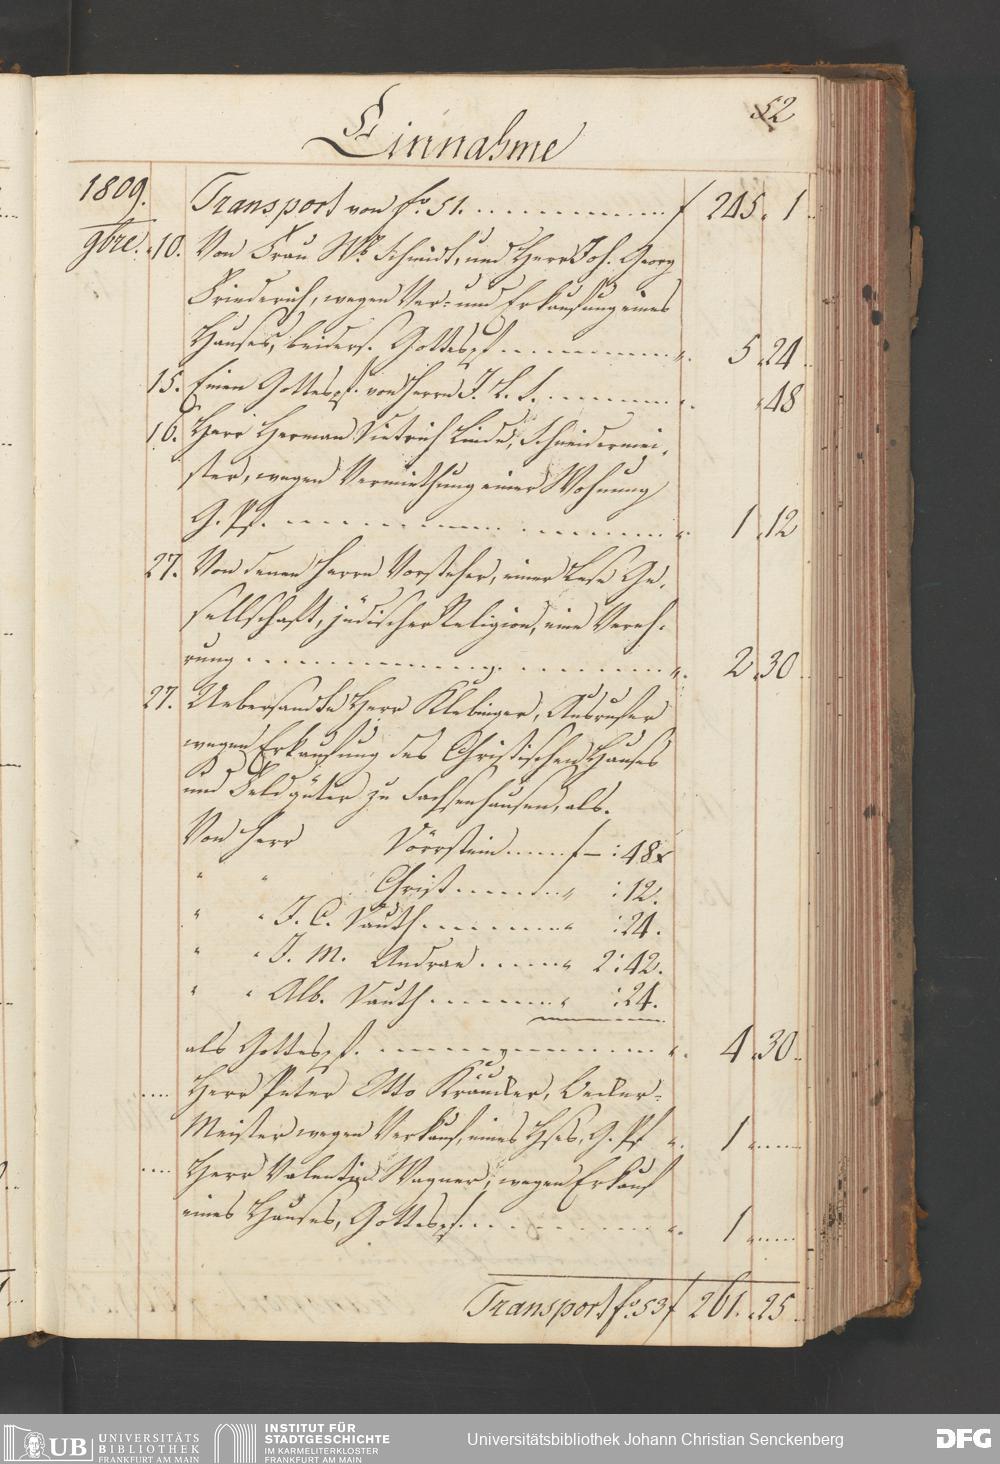 52
Einnahme
1809.
Transport von fo. 51. f 245. 1
9bre. 10. Von Frau Wb. Schmidt, und Herr Joh. Georg
Friederich, wegen Ver- und Erkaufung eines
Hauses, beiders. Gottespf. 5. 24
15. Einen Gottespf. von Herrn J. L. S. 48
16. Herr Herman Dietrich Linde, Schneidermei-
ster, wegen Vermiethung einer Wohnung
G. Pf. 1. 12
27. Von denen Herrn Vorsteher, einer Lese Ge-
sellschaft, jüdischer Religion, eine Vereh-
rung 2. 30
27. Uebersandte Herr Klebinger, Ausrufer
wegen Erkaufung des Christischen Hauses
und Feldgüter zu Sachsenhausen, als.
Von Herr Dörrstein f — : 48 x
" " Christ " : 12.
" " J. C. Vauth " : 24.
" " J. M. Andrae " 2 : 42.
" " Alb. Vauth " : 24.
als Gottespf. 4. 30
Herr Peter Otto Kräucker, Becker-
Meister wegen Verkauf, eines Hses, G. Pf. 1
Herr Valentin Wagner, wegen Erkauf
eines Hauses, Gottespf. 1
Transport fo. 53 f 261. 25
UB UNIVERSITÄTS
BIBLIOTHEK
FRANKFURT AM MAIN
INSTITUT FÜR
STADTGESCHICHTE
IM KARMELITERKLOSTER
FRANKFURT AM MAIN
Universitätsbibliothek Johann Christian Senckenberg
DFG